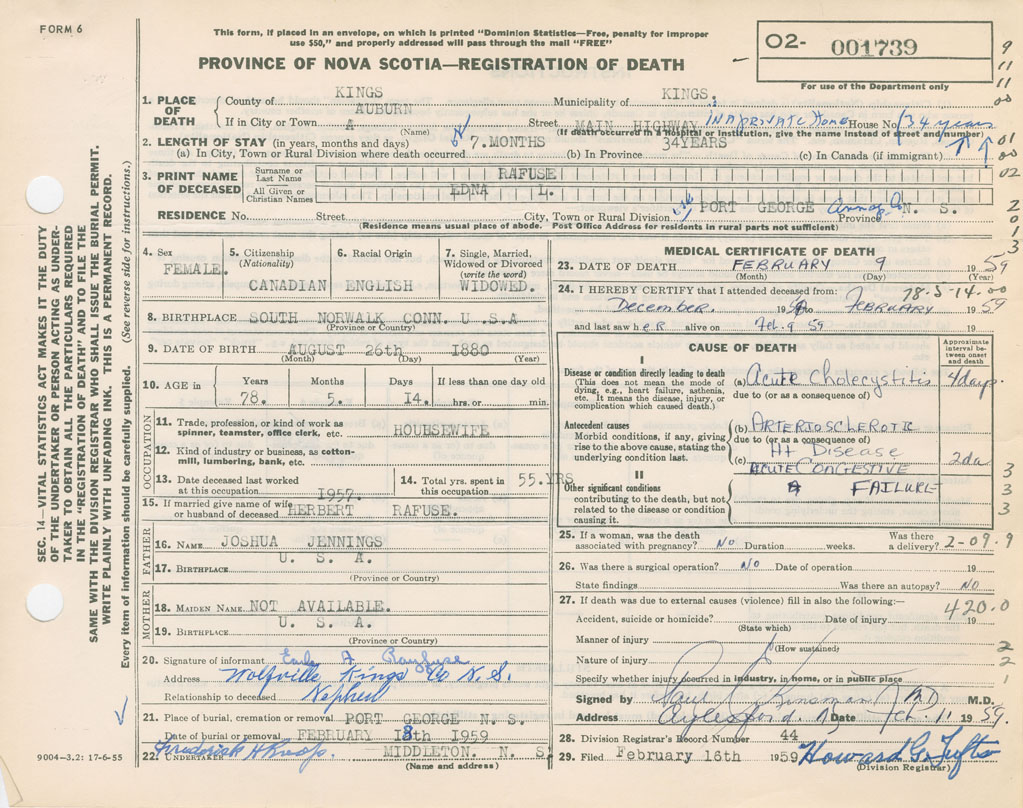 FORM 6
This form, if placed in an envelope, on which is printed "Dominion Statistics—Free, penalty for improper
use $50," and properly addressed will pass through the mail "FREE"
PROVINCE OF NOVA SCOTIA—REGISTRATION OF DEATH
O2- 001739
For use of the Department only
9
11
11
00
01
00
02
2
0
1
3
SEC. 14—VITAL STATISTICS ACT MAKES IT THE DUTY
OF THE UNDERTAKER OR PERSON ACTING AS UNDER-
TAKER TO OBTAIN ALL THE PARTICULARS REQUIRED
IN THE "REGISTRATION OF DEATH" AND TO FILE THE
SAME WITH THE DIVISION REGISTRAR WHO SHALL ISSUE THE BURIAL PERMIT.
WRITE PLAINLY WITH UNFADING INK. THIS IS A PERMANENT RECORD.
Every item of information should be carefully supplied. (See reverse side for instructions.)
1. PLACE OF DEATH
County of KINGS Municipality of KINGS.
If in City or Town AUBURN A (Name) Street MAIN HIGHWAY IN A PRIVATE Home House No (34 years
(If death occurred in a hospital or institution, give the name instead of street and number)
2. LENGTH OF STAY (in years, months and days)
(a) In City, Town or Rural Division where death occurred 7.MONTHS (b) In Province 34YEARS (c) In Canada (if immigrant)
3. PRINT NAME OF DECEASED
Surname or Last Name RAFUSE
All Given or Christian Names EDNA L.
RESIDENCE No. Street City, Town or Rural Division PORT GEORGE Annap. Co Province N. S.
(Residence means usual place of abode. Post Office Address for residents in rural parts not sufficient)
4. Sex FEMALE.
5. Citizenship (Nationality) CANADIAN
6. Racial Origin ENGLISH
7. Single, Married, Widowed or Divorced (write the word) WIDOWED.
8. BIRTHPLACE SOUTH NORWALK CONN. U .S.A
(Province or Country)
9. DATE OF BIRTH AUGUST 26th 1880
(Month) (Day) (Year)
10. AGE in Years 78. Months 5. Days 14. If less than one day old hrs. or min.
OCCUPATION
11. Trade, profession, or kind of work as spinner, teamster, office clerk, etc. HOUHSEWIFE
12. Kind of industry or business, as cotton-mill, lumbering, bank, etc.
13. Date deceased last worked at this occupation 1957.
14. Total yrs. spent in this occupation 55.YRS
15. If married give name of wife or husband of deceased HERBERT RAFUSE.
FATHER
16. NAME JOSHUA JENNINGS
17. BIRTHPLACE U. S. A.
(Province or Country)
MOTHER
18. MAIDEN NAME NOT AVAILABLE.
19. BIRTHPLACE U. S. A.
(Province or Country)
20. Signature of informant A Rayfuse
Address Wolfville Kings Co N.S.
Relationship to deceased Nephew
21. Place of burial, cremation or removal PORT GEORGE N. S.
Date of burial or removal FEBRUARY 13th 1959
22. UNDERTAKER MIDDLETON. N. S
(Name and address)
9004—3.2: 17-6-55
MEDICAL CERTIFICATE OF DEATH
23. DATE OF DEATH FEBRUARY 9 1959
(Month) (Day) (Year)
78-5-14.00
24. I HEREBY CERTIFY that I attended deceased from:
December. 19 to FEBRUARY 1959
and last saw h eR alive on Feb. 9 59 19
CAUSE OF DEATH
Approximate interval between onset and death
I
Disease or condition directly leading to death
(This does not mean the mode of dying, e.g., heart failure, asthenia, etc. It means the disease, injury, or complication which caused death.)
(a) Acute Cholecystitis 4days.
due to (or as a consequence of)
Antecedent causes
Morbid conditions, if any, giving rise to the above cause, stating the underlying condition last.
(b) ARTERIOSCLEROTIC
due to (or as a consequence of)
Ht Disease
(c) ACUTE CONGESTIVE 2da
FAILURE
II
Other significant conditions
contributing to the death, but not related to the disease or condition causing it.
3
3
3
25. If a woman, was the death associated with pregnancy? NO Duration weeks. Was there a delivery? 2-09.9
26. Was there a surgical operation? NO Date of operation 19
State findings Was there an autopsy? NO
27. If death was due to external causes (violence) fill in also the following:—
420.0
Accident, suicide or homicide? Date of injury 19
(State which)
Manner of injury
(How sustained)
2
Nature of injury
2
Specify whether injury occurred in industry, in home, or in public place
1
Signed by Paul Kinsman MD M.D.
Address Aylesford. NS Date Feb. 11 1959.
28. Division Registrar's Record Number 44
29. Filed February 16th 1959 Howard G. Tufts
(Division Registrar)